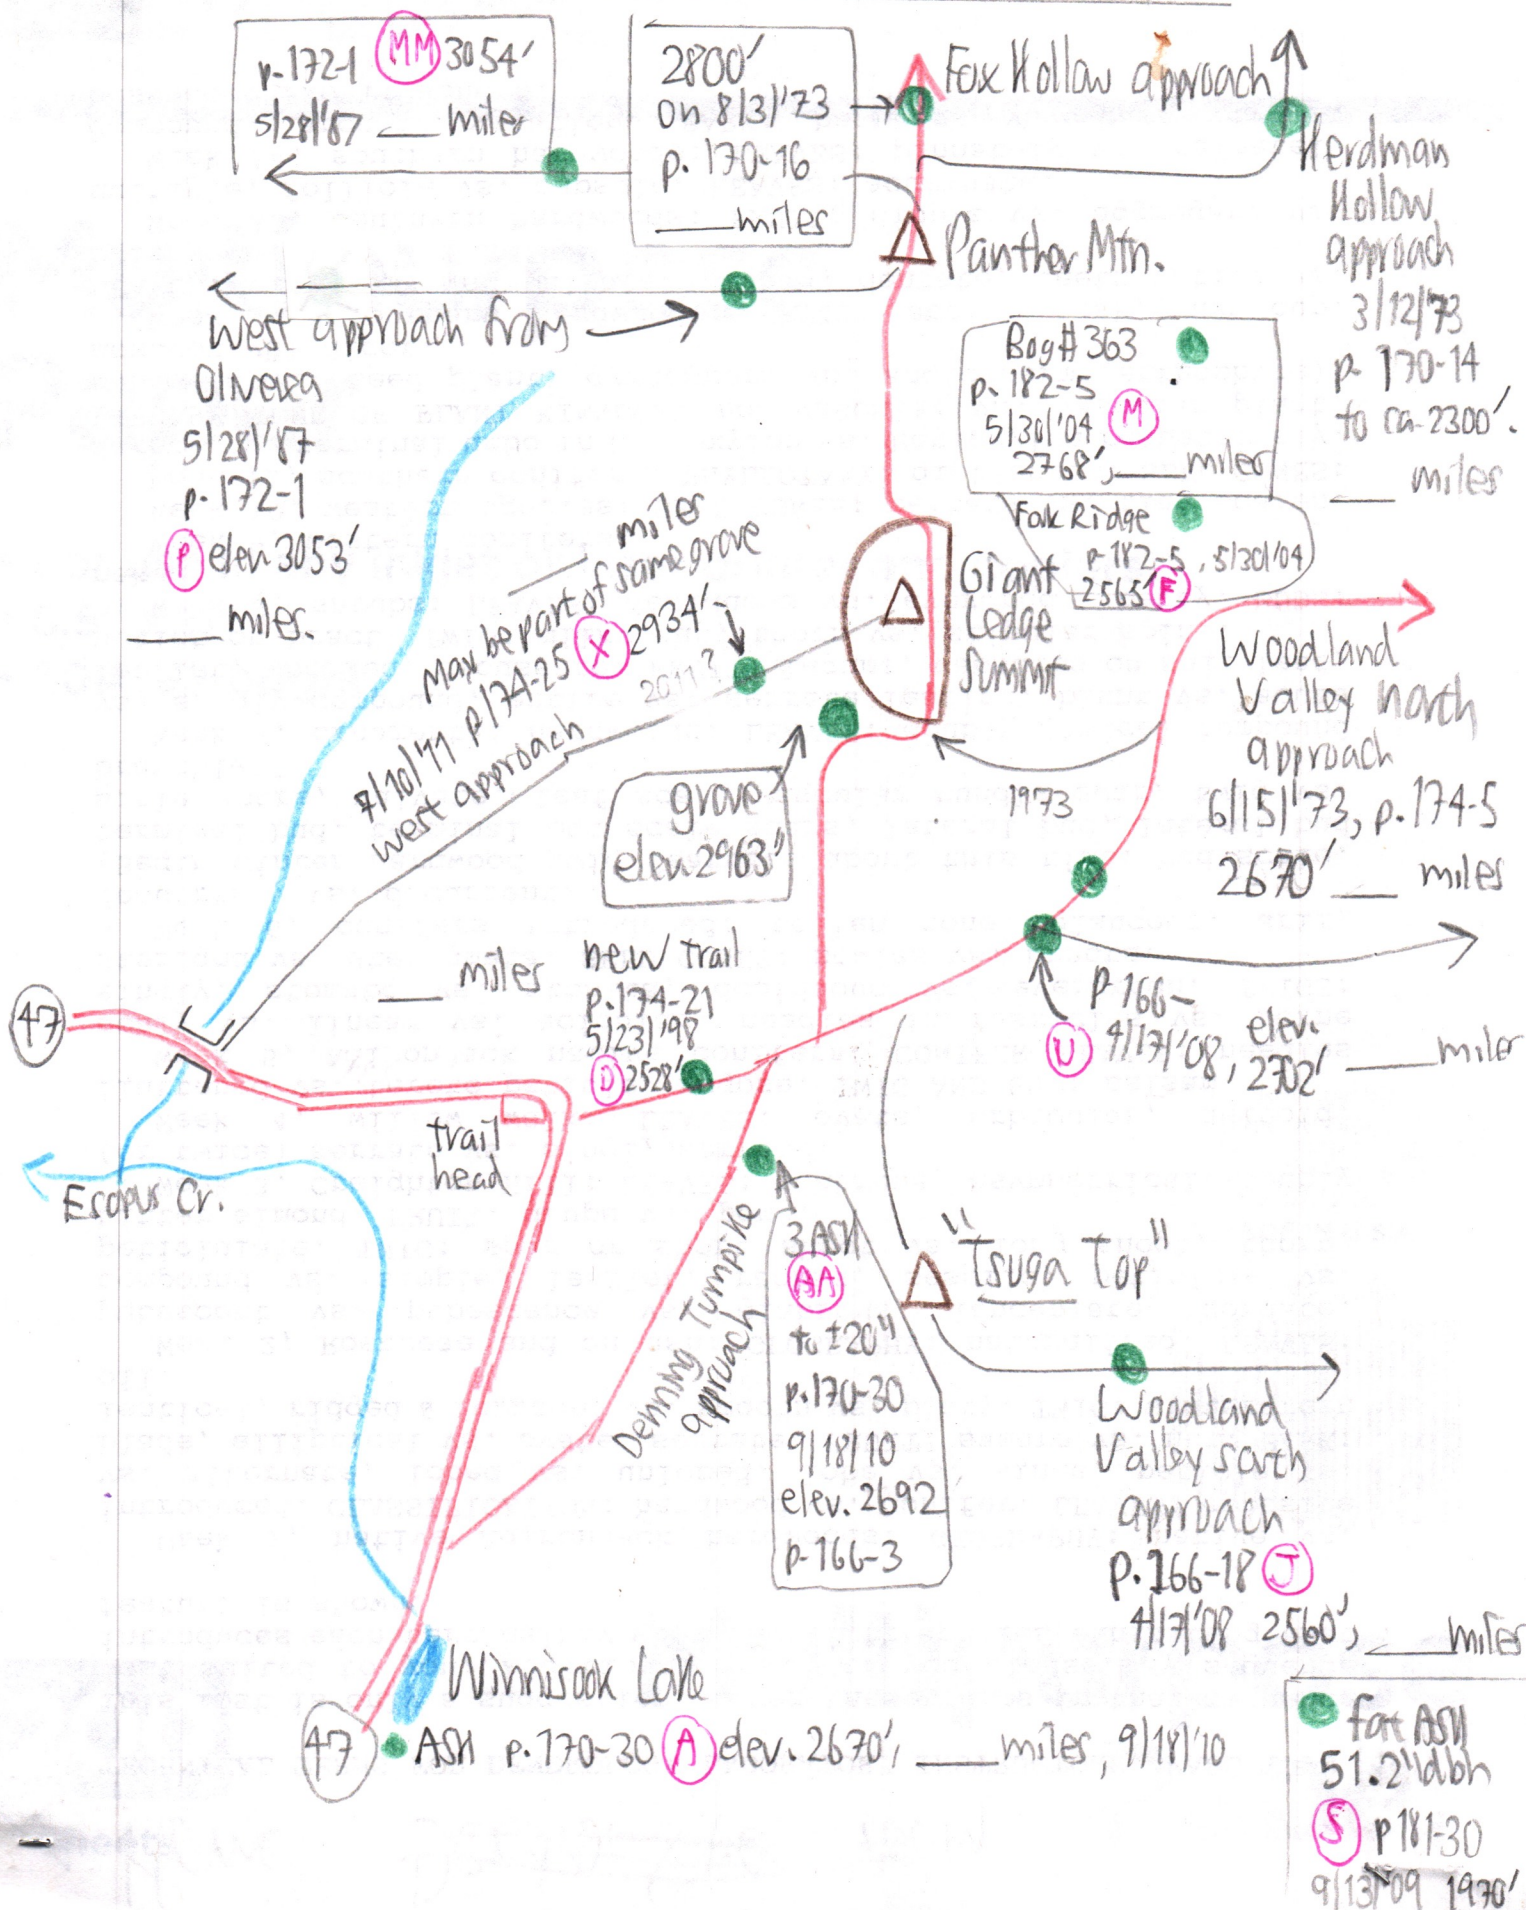 p-172-1 MM 3054'
5/28/'87 ___ miles
2800'
on 8/3/'73
p. 170-16
___miles
Fox Hollow approach
Herdman
Hollow
approach
3/12/'73
p- 170-14
to ca-2300'.
___ miles
Panther Mtn.
West approach from
Oliverea
5/28/'87
p. 172-1
P elev 3053'
___ miles.
Bog # 363
p. 182-5
5/30/'04 M
2768', ___miles
Fork Ridge
p-182-5, 5/30/'04
2565' F
___ miles
May be part of same grove
7/10/'11 p 174-25 X 2934'
2011?
west approach
Giant
Ledge
Summit
Woodland
Valley north
approach
6/15/'73, p. 174-5
2670' ___ miles
grove
elev. 2963'
1973
___ miles
new trail
p. 174-21
5/23/'98
D 2528'
47
trail
head
Esopus Cr.
p 166-
U 4/17/'08, elev.
2702' ___miles
Denning Turnpike
approach
3 ASH
AA
to ±20"
p. 170-30
9/18/10
elev. 2692
p-166-3
"Tsuga Top"
Woodland
Valley south
approach
p. 166-18 J
4/17/'08 2560', ___miles
Winnisook Lake
47 ASH p. 170-30 A elev. 2670', ___miles, 9/18/'10
fat ASH
51.2" dbh
S p 181-30
9/13/'09 1970'